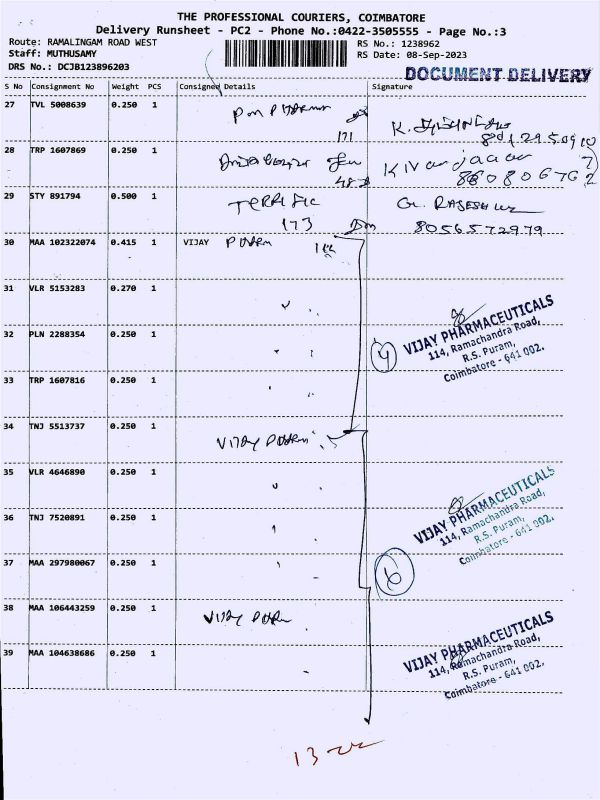 THE PROFESSIONAL COURIERS, COIMBATORE
Delivery Runsheet - PC2 - Phone No.:0422-3505555 - Page No.:3
Route: RAMALINGAM ROAD WEST
RS No.: 1238962
Staff: MUTHUSAMY
RS Date: 08-Sep-2023
DRS No.: DCJB123896203
DOCUMENT DELIVERY
S No Consignment No Weight PCS Consigned Details Signature
27 TVL 5008639 0.250 1
171
28 TRP 1607869 0.250 1
8808067672
29 STY 891794 0.500 1 TERRIFIC
173
8056572979
30 MAA 102322074 0.415 1 VIJAY
31 VLR 5153283 0.270 1
32 PLN 2288354 0.250 1
4
VIJAY PHARMACEUTICALS
114, Ramachandra Road,
R.S. Puram,
Coimbatore - 641 002.
33 TRP 1607816 0.250 1
34 TNJ 5513737 0.250 1
VIJAY
35 VLR 4646890 0.250 1
36 TNJ 7520891 0.250 1
VIJAY PHARMACEUTICALS
114, Ramachandra Road,
R.S. Puram,
Coimbatore - 641 002.
37 MAA 297980067 0.250 1
6
38 MAA 106443259 0.250 1
VIJAY
39 MAA 104638686 0.250 1
VIJAY PHARMACEUTICALS
114, Ramachandra Road,
R.S. Puram,
Coimbatore - 641 002.